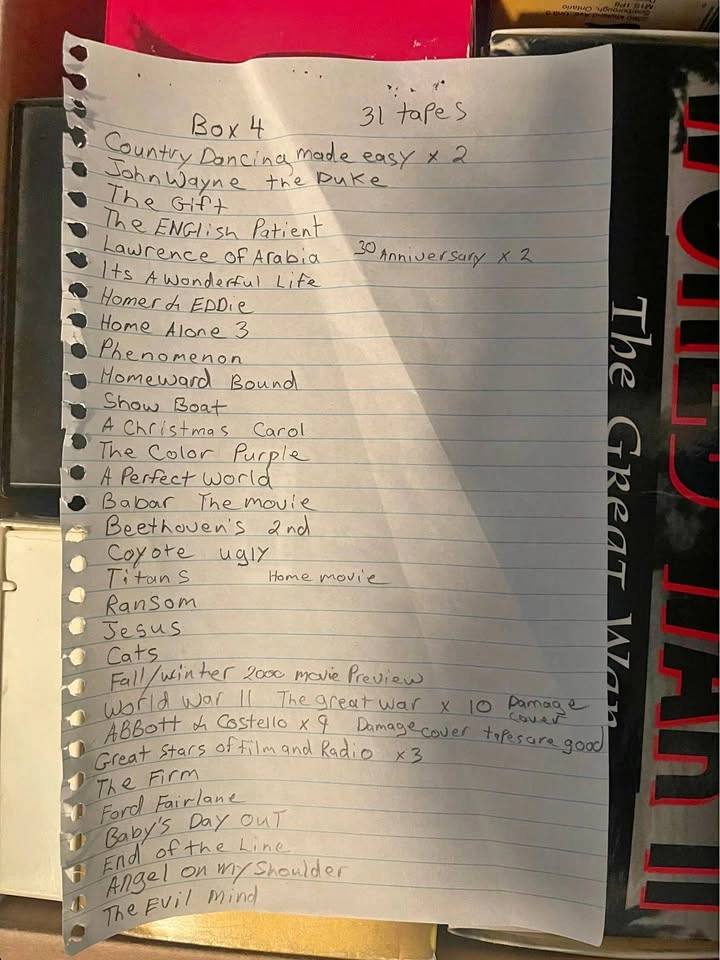 Box 4 31 tapes
Country Dancing made easy x 2
John Wayne the Duke
The Gift
The ENGlish Patient
Lawrence of Arabia 30 Anniversary x 2
Its A Wonderful Life
Homer & EDDie
Home Alone 3
Phenomenon
Homeward Bound
Show Boat
A Christmas Carol
The Color Purple
A Perfect World
Babar The movie
Beethoven's 2nd
Coyote ugly
Titans Home movie
Ransom
Jesus
Cats
Fall/winter 2000 movie Preview
World War 11 The great war x 10 Damage cover
ABBott & Costello x 9 Damage cover tapes are good
Great Stars of film and Radio x3
The Firm
Ford Fairlane
Baby's Day OuT
End of the Line
Angel on my Shoulder
The Evil Mind
The Great War
WORLD WAR II
Scarborough, Ontario